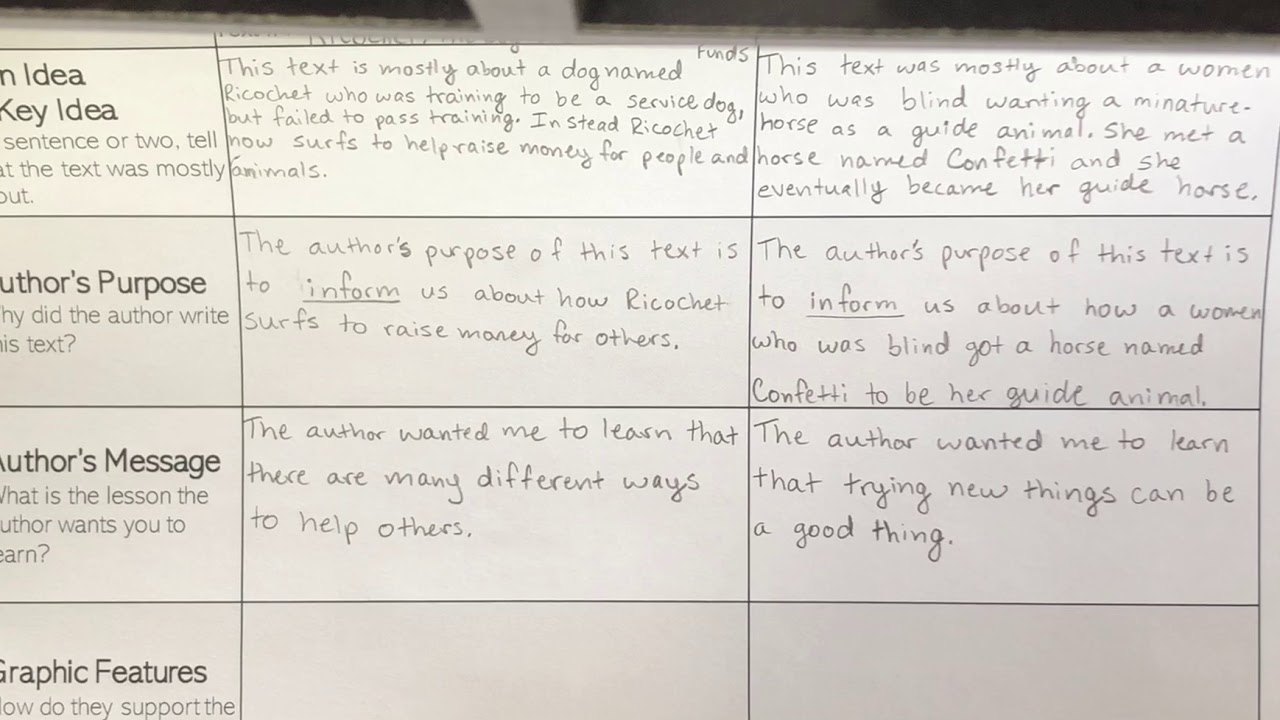 Funds
n Idea
Key Idea
sentence or two, tell
at the text was mostly
out.
This text is mostly about a dog named
Ricochet who was training to be a service dog,
but failed to pass training. Instead Ricochet
now surfs to help raise money for people and
animals.
This text was mostly about a women
who was blind wanting a minature-
horse as a guide animal. She met a
horse named Confetti and she
eventually became her guide horse.
uthor's Purpose
hy did the author write
is text?
The author's purpose of this text is
to inform us about how Ricochet
surfs to raise money for others.
The author's purpose of this text is
to inform us about how a women
who was blind got a horse named
Confetti to be her guide animal.
Author's Message
What is the lesson the
uthor wants you to
earn?
The author wanted me to learn that
there are many different ways
to help others.
The author wanted me to learn
that trying new things can be
a good thing.
Graphic Features
How do they support the